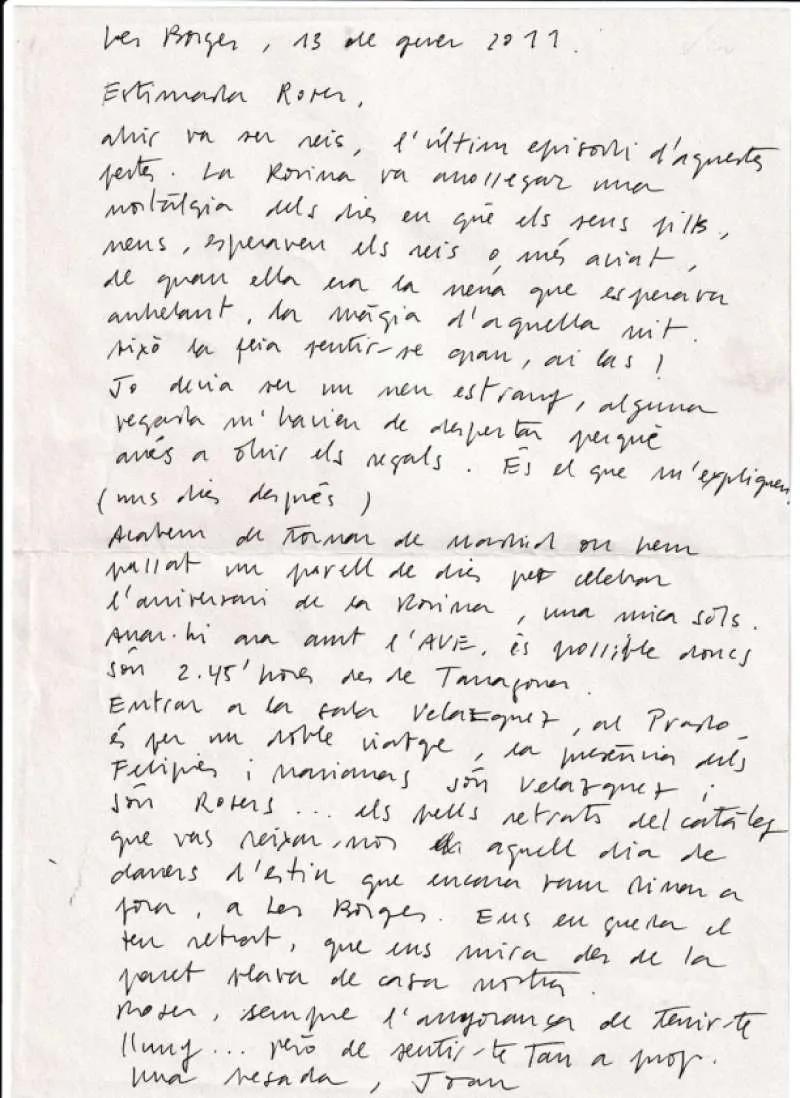 Les Borges, 13 de gener 2011.
Estimada Roser,
ahir va ser reis, l'últim episodi d'aquestes
festes. La Rosina va arrossegar una
nostàlgia dels dies en què els seus fills,
nens, esperaven els reis o, més aviat,
de quan ella era la nena que esperava
anhelant, la màgia d'aquella nit.
Això la feia sentir-se gran, ai las!
Jo devia ser un nen estrany, alguna
vegada m'havien de despertar perquè
anés a obrir els regals. És el que m'expliquen.
(uns dies després)
Acabem de tornar de Madrid on hem
passat un parell de dies per celebrar
l'aniversari de la Rosina, una mica sols.
Anar-hi ara amb l'AVE, és possible doncs
són 2.45' hores des de Tarragona.
Entrar a la sala Velazquez, al Prado
és fer un doble viatge, la presència dels
Felipes i Marianas són Velazquez i
són Rosers... els bells retrats del catàleg
que vas deixar-nos aquell dia de
darrers d'estiu que encara vam dinar a
fora, a Les Borges. Ens en queda el
teu retrat, que ens mira des de la
paret blava de casa nostra.
Roser, sempre l'anyorança de tenir-te
lluny... però de sentir-te tan a prop.
Una besada, Joan